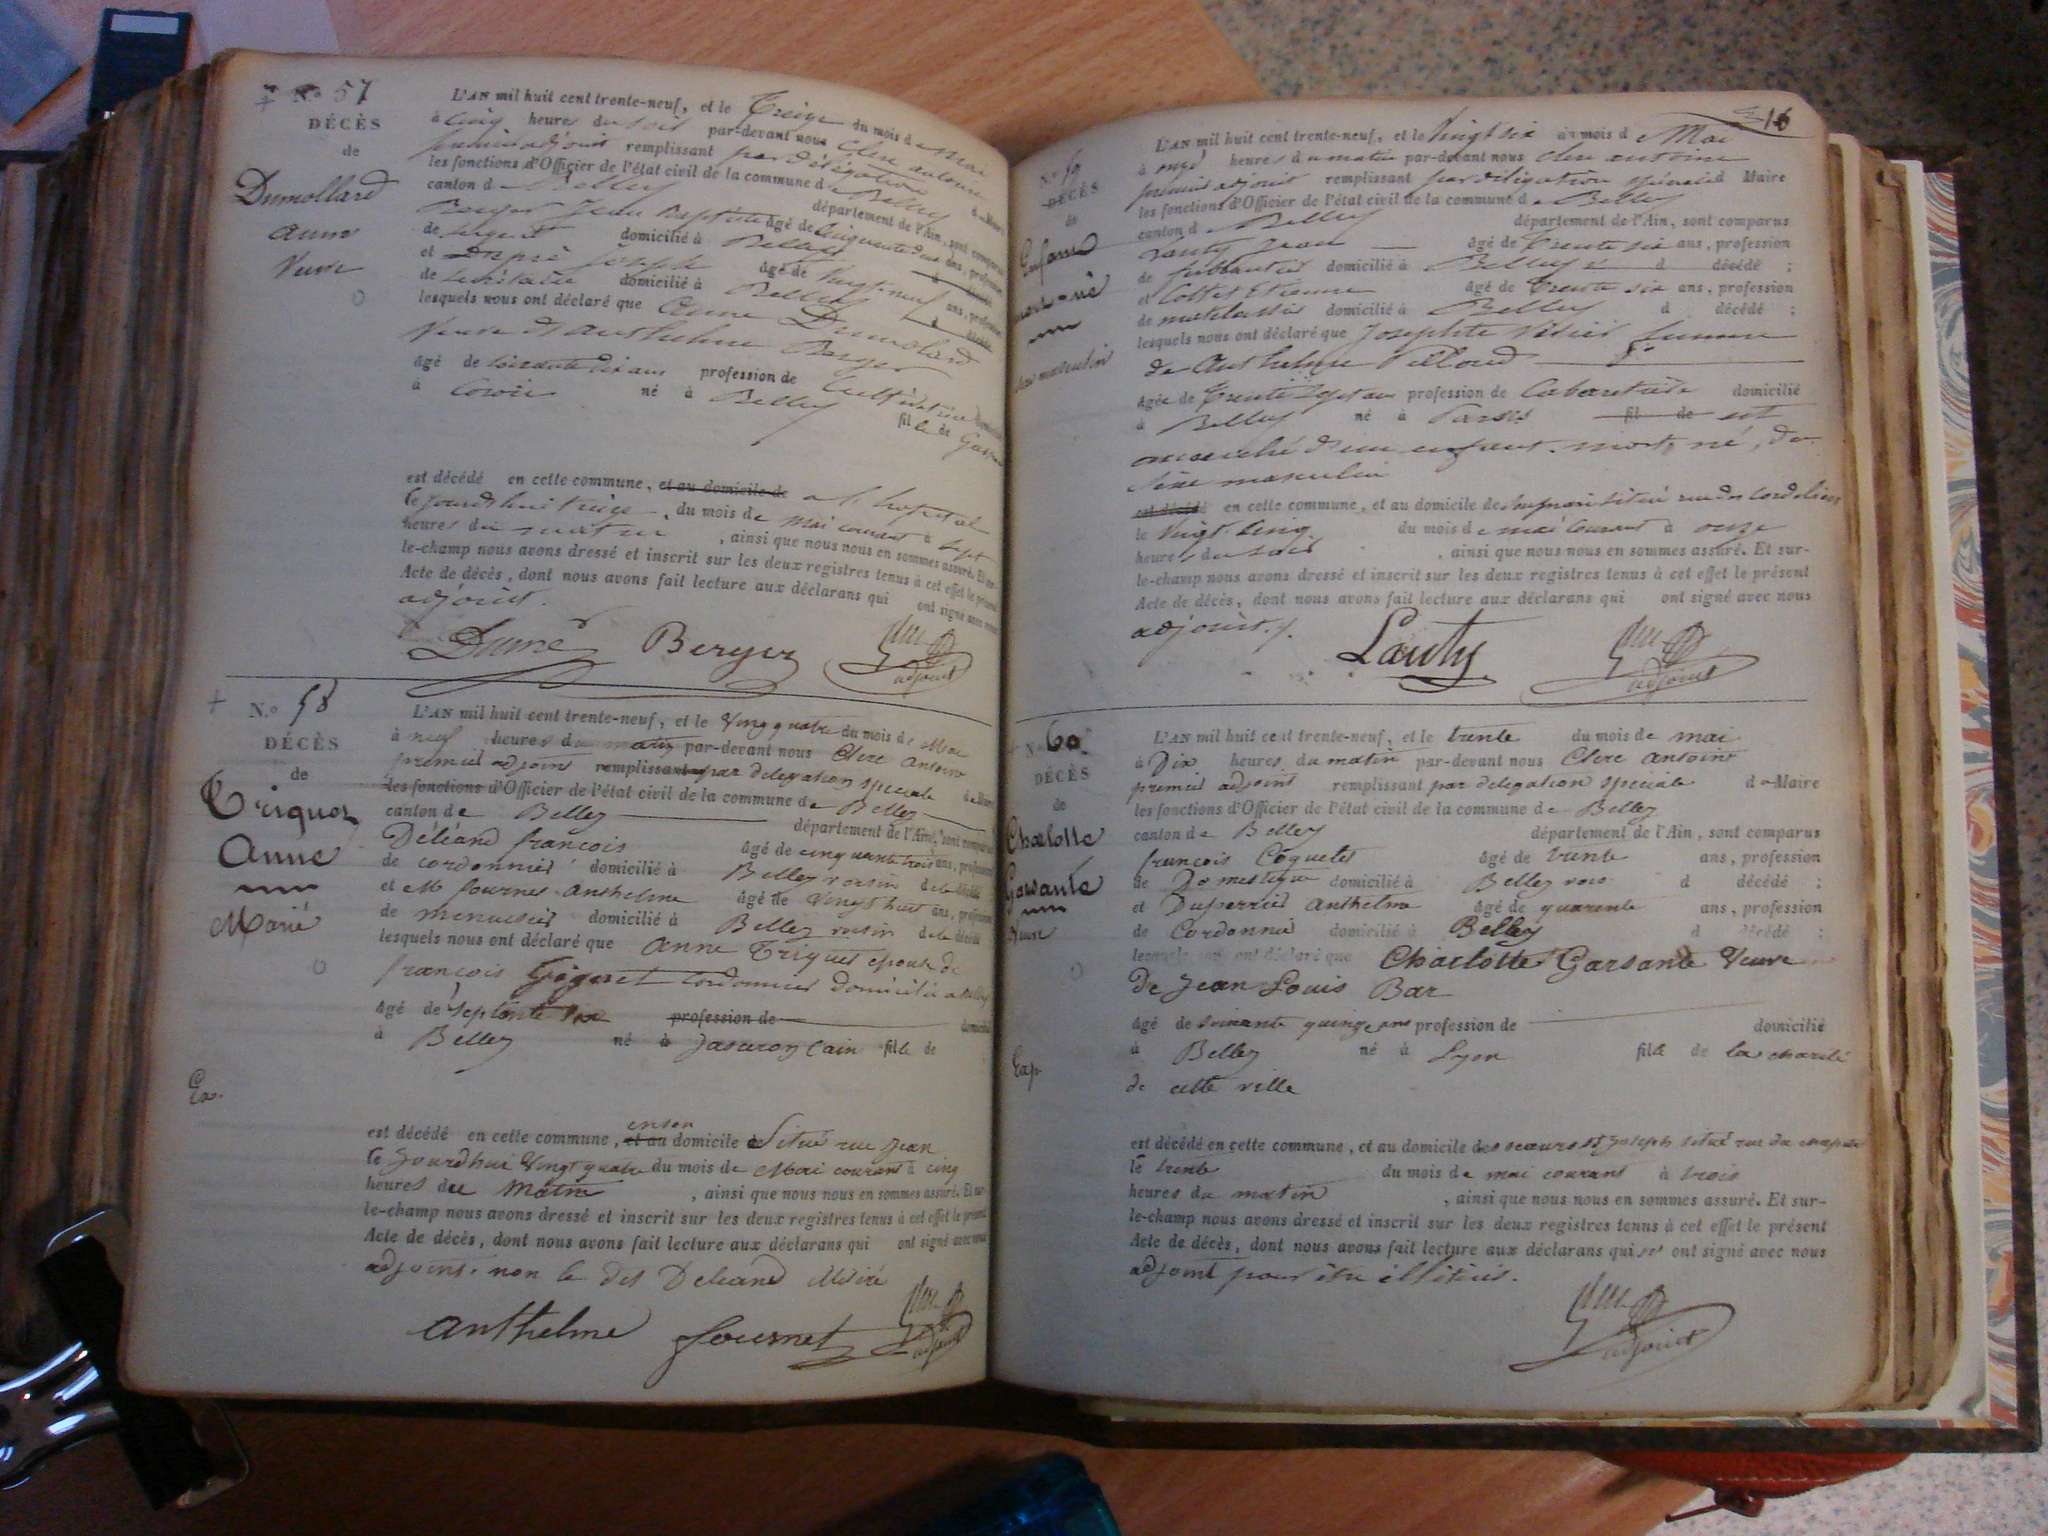 No 57
DÉCÈS
de
Dumollard
anne
Veuve
L'AN mil huit cent trente-neuf, et le Treize du mois de Mai
à Cinq heures du soir par-devant nous Clerc antoine
premier adjoint remplissant par délégation de Maire
les fonctions d'Officier de l'état civil de la commune de Belley
canton de Belley département de l'Ain, sont comparus
Berger Jean Baptiste âgé de Cinquante deux ans, profession
de sergent domicilié à Belley d décédé
et Dupré Joseph âgé de Vingt neuf ans, profession
de secrétaire domicilié à Belley d décédé
lesquels nous ont déclaré que Anne Dumolard
Veuve d'anthelme Berger
âgé de soixante dix ans profession de Cultivatrice domicilié
à Coron né à Belley fille de
est décédé en cette commune, et au domicile de a l'hopital
le jourdhui treize, du mois de Mai courant à Sept
heures du matin, ainsi que nous nous en sommes assuré. Et sur-
le-champ nous avons dressé et inscrit sur les deux registres tenus à cet effet le présent
Acte de décès, dont nous avons fait lecture aux déclarans qui ont signé avec nous
adjoint.
Dupré Berger
adjoint
No 58
DÉCÈS
de
Triquet
Anne
Marié
Ex.
L'AN mil huit cent trente-neuf, et le Vingt quatre du mois de Mai
à neuf heures du matin par-devant nous Clerc Antoine
premier adjoint remplissant par delegation speciale de Maire
les fonctions d'Officier de l'état civil de la commune de Belley
canton de Belley département de l'Ain, sont comparus
Déléand françois âgé de cinquante trois ans, profession
de cordonnier domicilié à Belley voisin de la décédé
et M fournet Anthelme âgé de vingt huit ans, profession
de menuisier domicilié à Belley voisin de la décédé
lesquels nous ont déclaré que Anne Triquet epouse de
françois Gojonet Cordonnier domicilié a Belley
âgé de Septante profession de domicilié
à Belley né à fille de
est décédé en cette commune, et au enson domicile Situé rue Jean
le Jourdhui Vingt quatre du mois de Mai courant à cinq
heures du Matin, ainsi que nous nous en sommes assuré. Et sur-
le-champ nous avons dressé et inscrit sur les deux registres tenus à cet effet le présent
Acte de décès, dont nous avons fait lecture aux déclarans qui ont signé avec nous
adjoint. non le dit Deleand
anthelme fournet
adjoint
16
No 59
DÉCÈS
de
Enfant
mort-né
sexe masculin
L'AN mil huit cent trente-neuf, et le Vingt six du mois de Mai
à onze heures du matin par-devant nous Clerc antoine
premier adjoint remplissant par délégation spéciale d Maire
les fonctions d'Officier de l'état civil de la commune de Belley
canton de Belley département de l'Ain, sont comparus
Lauty Jean âgé de Trente six ans, profession
de ferblantier domicilié à Belley d décédé;
et Cottet Etienne âgé de Trente six ans, profession
de matelassier domicilié à Belley d décédé;
lesquels nous ont déclaré que Josephte femme
de Anthelme Pelloud
âgée de Trente Sept ans profession de Cabaretière domicilié
à Belley né à fil de est
accouché d'un enfant mort né, du
sexe masculin
est décédé en cette commune, et au domicile de son mari situé rue des Cordeliers
le Vingt Cinq du mois de mai Courant à onze
heures du soir, ainsi que nous nous en sommes assuré. Et sur-
le-champ nous avons dressé et inscrit sur les deux registres tenus à cet effet le présent
Acte de décès, dont nous avons fait lecture aux déclarans qui ont signé avec nous
adjoint.
Lauty
adjoint
No 60
DÉCÈS
de
Charlotte
Garsante
Veuve
Exp.
L'AN mil huit cent trente-neuf, et le trente du mois de mai
à Dix heures du matin par-devant nous Clerc Antoine
premier adjoint remplissant par delegation speciale de Maire
les fonctions d'Officier de l'état civil de la commune de Belley
canton de Belley département de l'Ain, sont comparus
françois Coquetet âgé de trente ans, profession
de Domestique domicilié à Belley d décédé;
et Duperrier Anthelme âgé de quarente ans, profession
de Cordonnié domicilié à Belley d décédé;
lesquels nous ont déclaré que Charlotte Garsante Veuve
De Jean Louis Bar
âgé de soixante quinze ans profession de domicilié
à Belley né à Lyon fille de la charité
de cette ville
est décédé en cette commune, et au domicile des sœurs St Joseph situé rue du
le trente du mois de mai courant à trois
heures du matin, ainsi que nous nous en sommes assuré. Et sur-
le-champ nous avons dressé et inscrit sur les deux registres tenus à cet effet le présent
Acte de décès, dont nous avons fait lecture aux déclarans qui ont signé avec nous
adjoint pour être illitérés.
adjoint